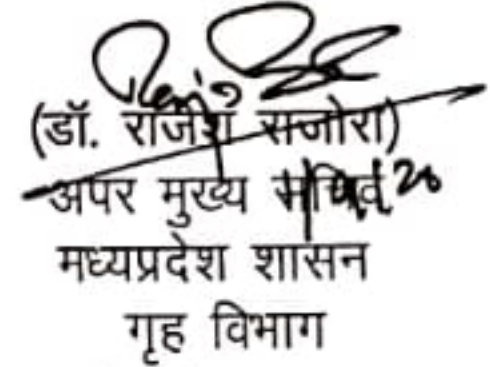 (डॉ. राजेश राजोरा)
अपर मुख्य सचिव
मध्यप्रदेश शासन
गृह विभाग